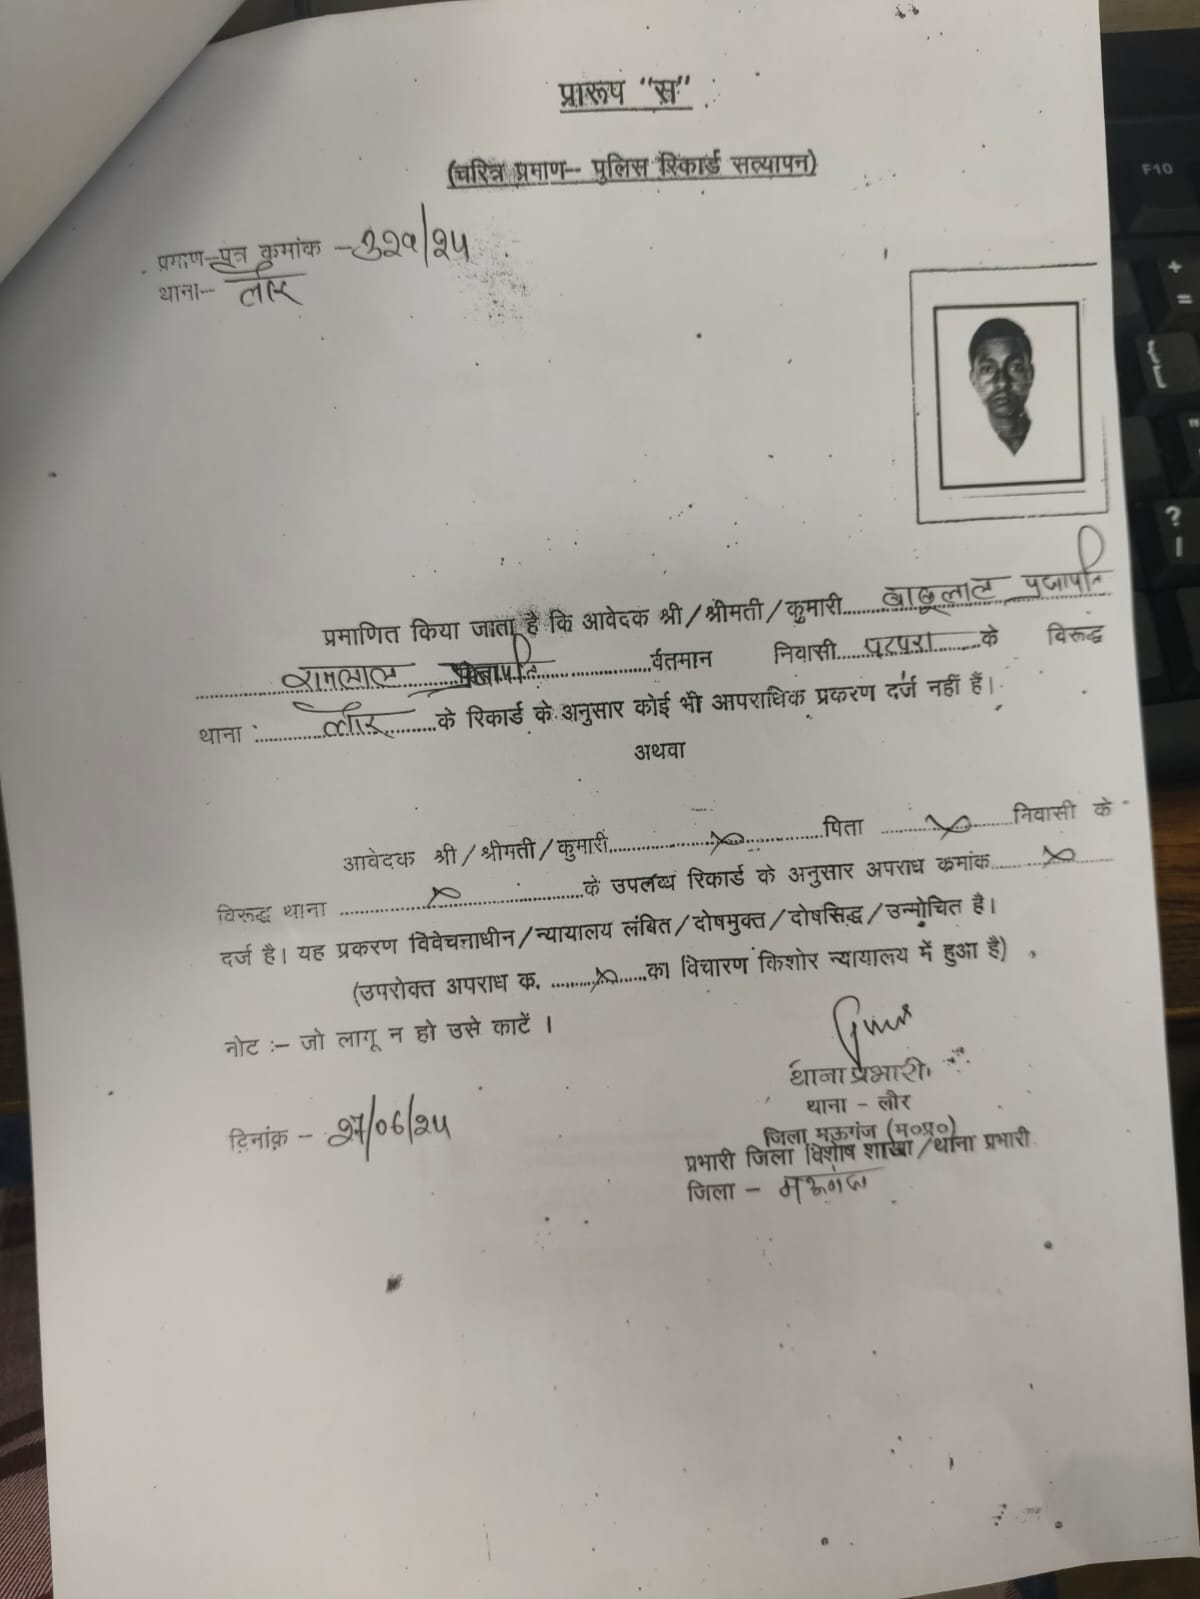 प्रारूप "स"
(चरित्र प्रमाण-- पुलिस रिकार्ड सत्यापन)
प्रमाण--पत्र क्रमांक - ३२१/२५
थाना-- लौर
प्रमाणित किया जाता है कि आवेदक श्री/श्रीमती/कुमारी..... बाबूलाल प्रजापति
रामलाल प्रजापति ..........र्वतमान निवासी..... पटपरा .....के विरूद्ध
थाना :......... लौर ........के रिकार्ड के अनुसार कोई भी आपराधिक प्रकरण दर्ज नहीं हैं।
अथवा
आवेदक श्री/श्रीमती/कुमारी....................पिता ....................निवासी के
विरूद्ध थाना ..............................के उपलब्ध रिकार्ड के अनुसार अपराध क्रमांक..............
दर्ज है। यह प्रकरण विवेचनाधीन/न्यायालय लंबित/दोषमुक्त/दोषसिद्ध/उन्मोचित है।
(उपरोक्त अपराध क. ............का विचारण किशोर न्यायालय में हुआ है)
नोट :– जो लागू न हो उसे काटें ।
थाना प्रभारी
थाना - लौर
दिनांक – 27/06/25
जिला मऊगंज (म०प्र०)
प्रभारी जिला विशेष शाखा/थाना प्रभारी
जिला – मऊगंज
F10
+
=
{
[
"
?
/